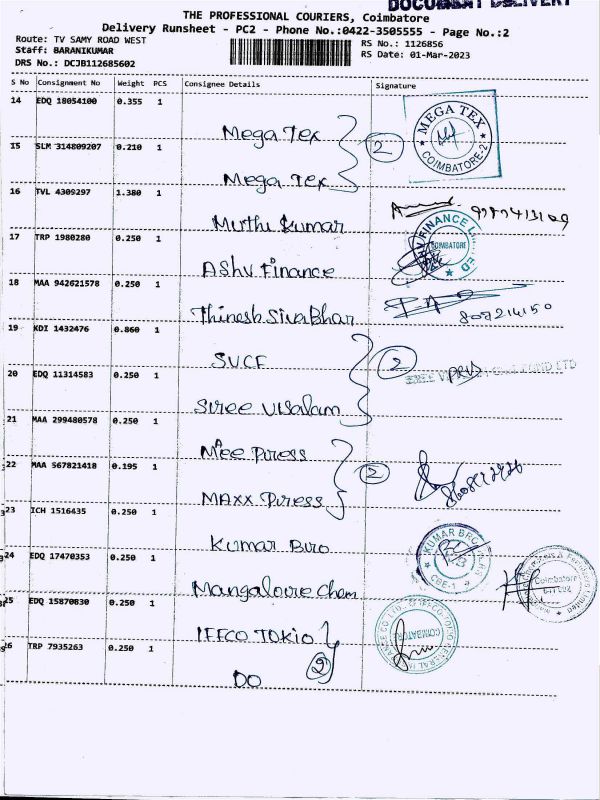 DOCUMENT DELIVERY
THE PROFESSIONAL COURIERS, Coimbatore
Delivery Runsheet - PC2 - Phone No.:0422-3505555 - Page No.:2
Route: TV SAMY ROAD WEST
RS No.: 1126856
Staff: BARANIKUMAR
RS Date: 01-Mar-2023
DRS No.: DCJB112685602
S No Consignment No Weight PCS Consignee Details Signature
14 EDQ 18054100 0.355 1
Mega Tex
2
MEGA TEX
COIMBATORE-2
15 SLM 314809207 0.210 1
Mega Tex
16 TVL 4309297 1.380 1
Muthu Kumar
17 TRP 1980280 0.250 1
Ashv Finance
ASHV FINANCE
COIMBATORE
18 MAA 942621578 0.250 1
Thinesh SivaBhar
19 KDI 1432476 0.860 1
SVCF
2
20 EDQ 11314583 0.250 1
Sree Visalam
21 MAA 299480578 0.250 1
Press
2
22 MAA 567821418 0.195 1
MAXX Press
23 ICH 1516435 0.250 1
Kumar Bro
KUMAR
CBE-1
24 EDQ 17470353 0.250 1
Mangalore Chem
Coimbatore
25 EDQ 15870830 0.250 1
IFFCO TOKIO
2
COIMBATORE
26 TRP 7935263 0.250 1
DO